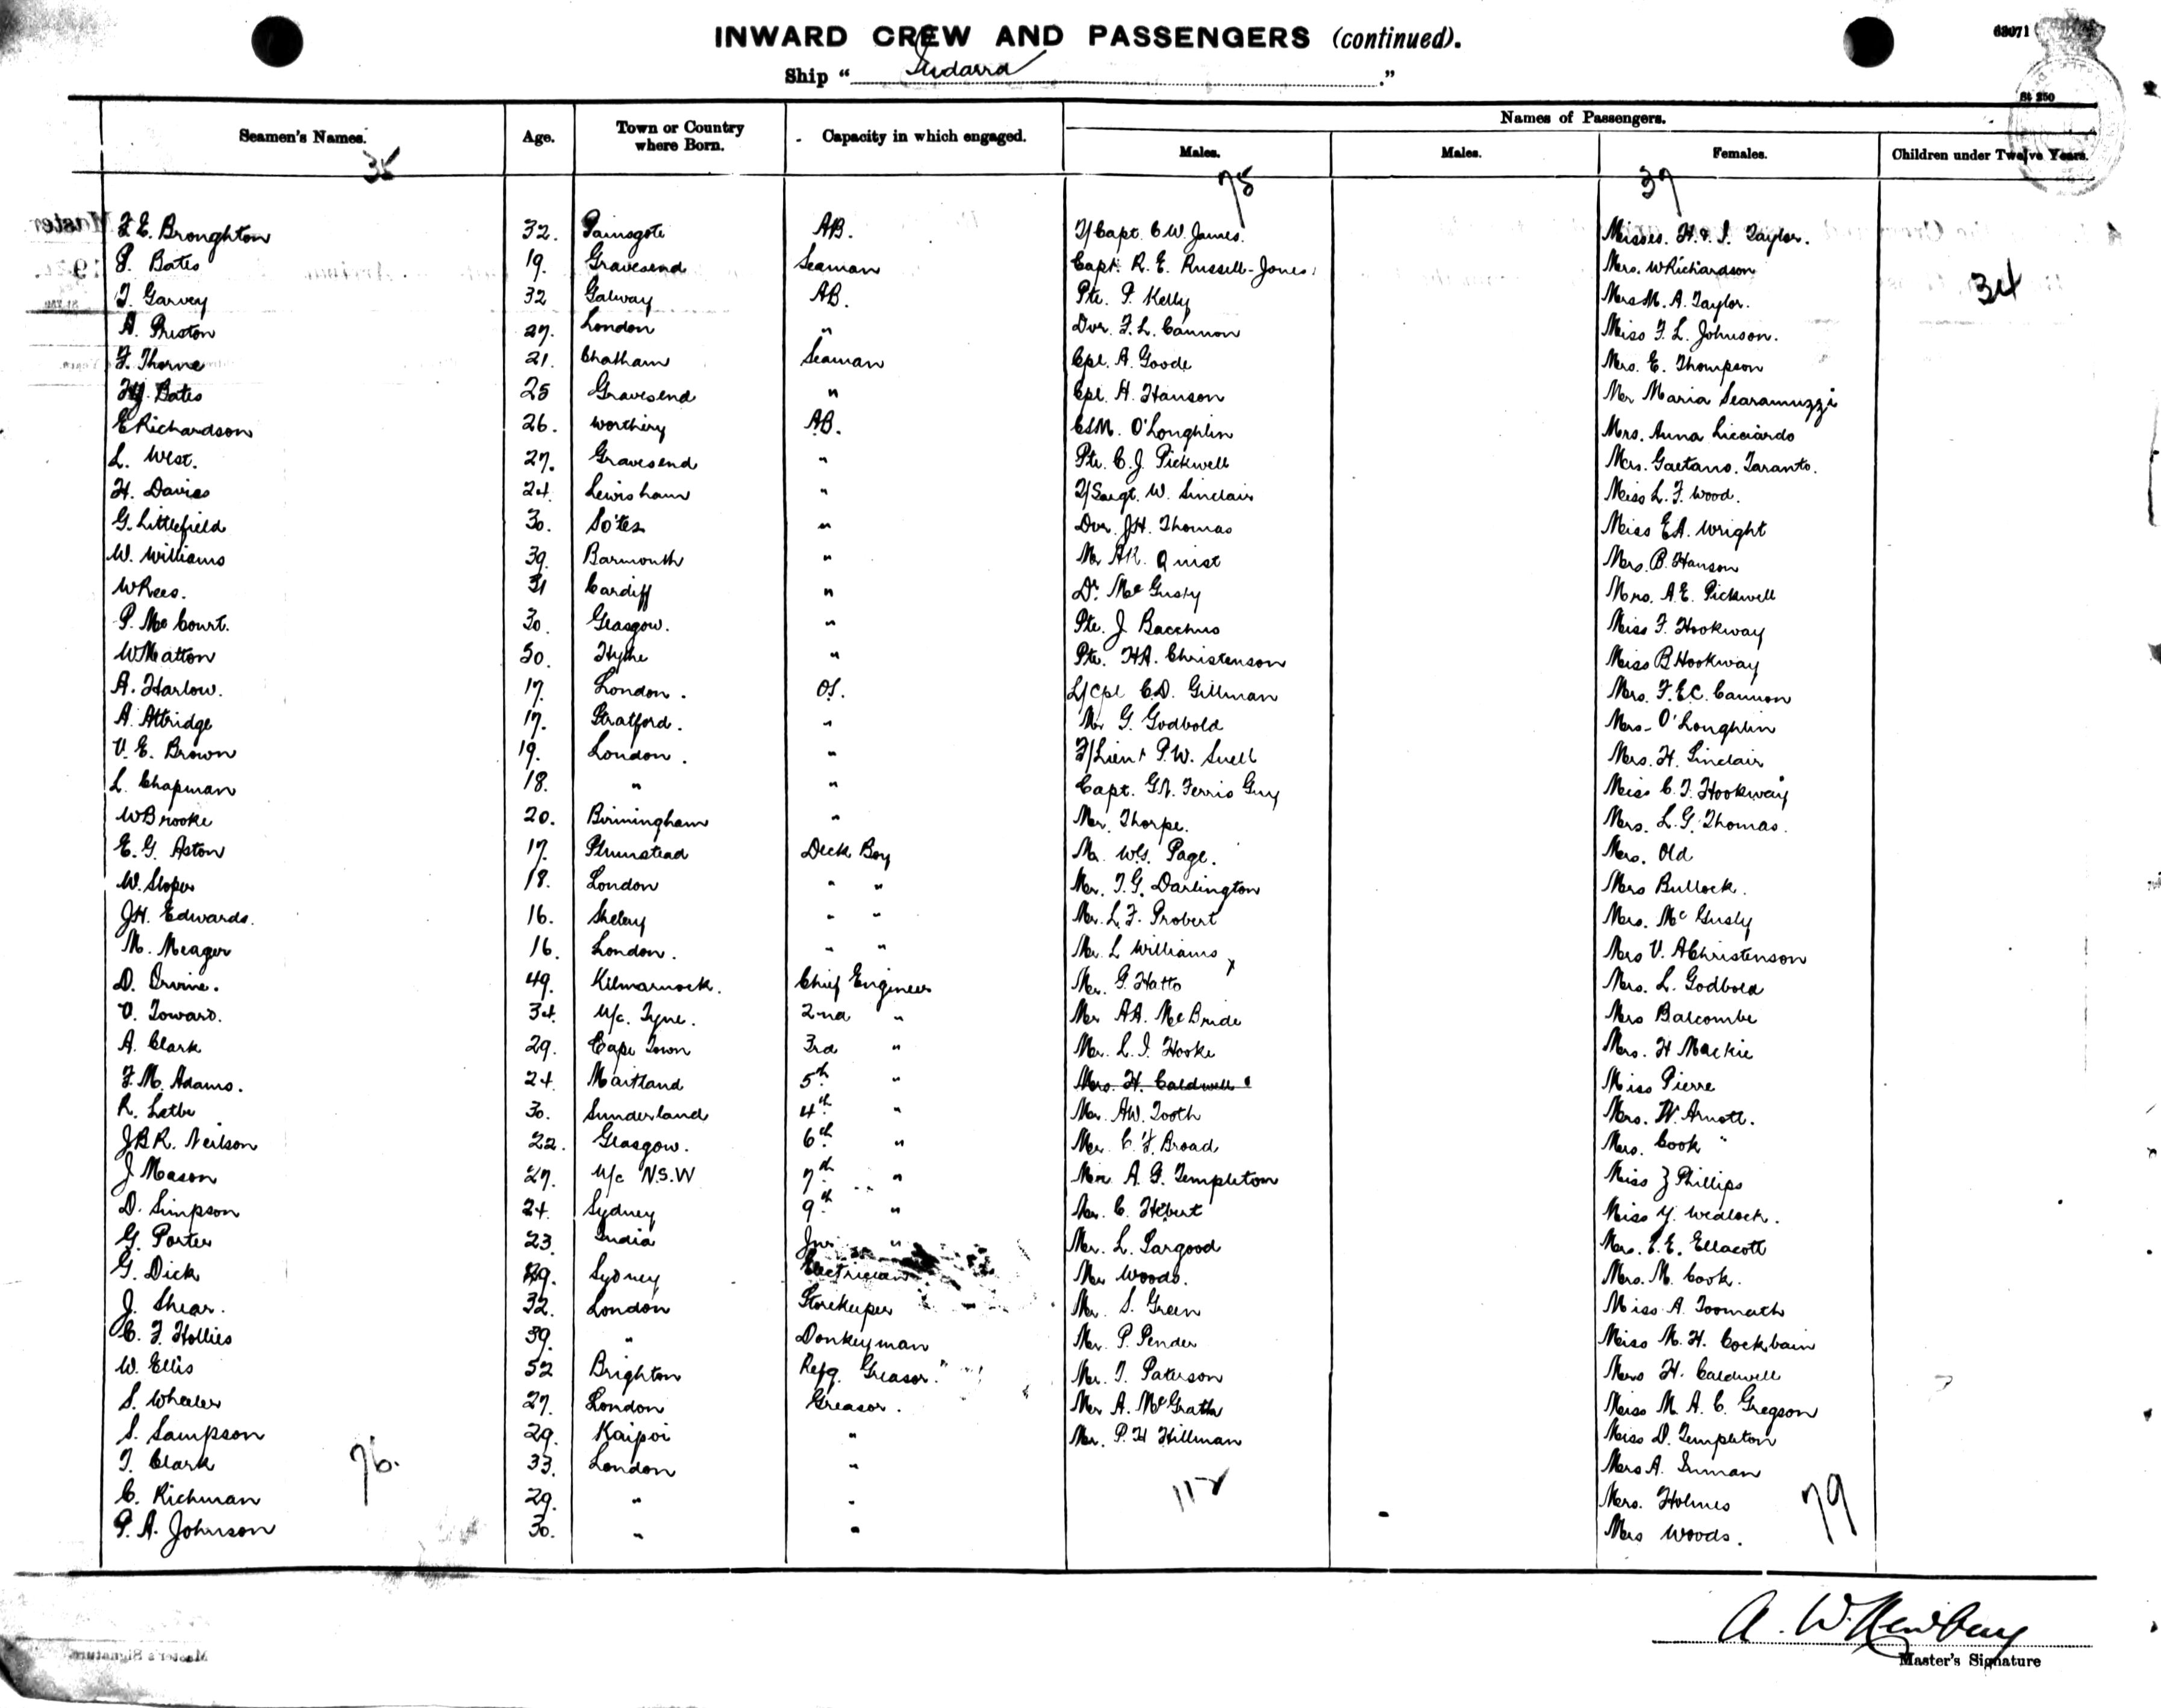 INWARD CREW AND PASSENGERS (continued).
63071
Ship " Indarra ."
St 250
Names of Passengers.
Seamen's Names. Age. Town or Country where Born. Capacity in which engaged. Males. Males. Females. Children under Twelve Years.
35 78 37
F E. Broughton 32. Ramsgate AB. T/Capt. C W. James. Misses. H. & S. Taylor.
P. Bates 19. Gravesend Seaman Capt. R. E. Russell-Jones. Mrs. W Richardson
34
T. Garvey 32 Galway AB. Pte. P. Kelly Mrs M. A. Taylor.
A. Preston 27. London " Dvr. F. L. Cannon Miss F. L. Johnson.
F. Thorne 21. Chatham Seaman Cpl. A. Goode Mrs. E. Thompson
Bates 25 Gravesend " Cpl. H. Hanson Maria Scaramuzzi
E Richardson 26. Worthing AB. CSM. O'Loughlin Mrs. Anna Licciardo
L. West. 27. Gravesend " Pte. C. J. Pickwell Mrs. Gaetano. Taranto.
H. Davies 24. Lewisham " T/Sergt. W. Sinclair Miss L. F. Wood.
G. Littlefield 30. So'ton " Dvr. J H. Thomas Miss E A. Wright
W. Williams 39. Barmouth " Mr A R. Quist Mrs. B. Hanson
W Rees. 31 Cardiff " Dr. McGusty Mrs. A. E. Pickwell
P. McCourt. 30. Glasgow. " Pte. J Bacchus Miss F. Hookway
W Matton 50. Hythe " Pte. H A. Christenson Miss B Hookway
A. Harlow. 17. London. OS. L/Cpl C. D. Gillman Mrs. F. E C. Cannon
A. Attridge 17. Stratford. " Mr G. Godbold Mrs. O'Loughlin
V. E. Brown 19. London. " F/Lieut P. W. Snell Mrs. H. Sinclair
L. Chapman 18. " " Capt. G N. Ferris Guy Miss C. T. Hookway
W Brooke 20. Birmingham " Mr. Thorpe. Mrs. L. G. Thomas.
E. G. Aston 17. Plumstead Deck Boy Mr. W S. Page. Mrs. Old
W. Sloper 18. London " " Mr. T. G. Darlington Mrs Bullock.
J H. Edwards. 16. " " Mr. L. F. Probert Mrs. McGusty
M. Meager 16. London. " " Mr. L Williams Mrs V. A Christenson
D. Irvine. 49. Kilmarnock. Chief Engineer Mr. G. Hatto Mrs. L. Godbold
O. Toward. 34. N/c. Tyne. 2nd " Mr A A. McBride Mrs Balcombe
A. Clark 29. Cape Town 3rd " Mr. L. I. Hooke Mrs. H Mackie
F. M. Adams. 24. Maitland 5th " Mrs. H. Caldwell Miss Pierre
R. Lathe 30. Sunderland 4th " Mr. A W. Tooth Mrs. W. Arnott.
J B R. Neilson 22. Glasgow. 6th " Mr. C. F. Broad Mrs. Cook
J Mason 27. N/c N.S.W 7th " Mr A. G. Templeton Miss Z Phillips
D. Simpson 24. Sydney 9th " Mr. C. Hebert Miss Y. Wedlock.
G. Porter 23. India Jnr. " Mr. L. Sargood Mrs. E. E. Ellacott
G. Dick 29. Sydney Electrician Mr Woods. Mrs. M. Cook.
J. Shear. 32. London Storekeeper Mr. S. Green Miss A. Toomath
C. F. Hollies 39. " Donkeyman Mr. P. Pender Miss M. H. Cockbain
W. Ellis 52 Brighton Refg. Greaser. Mr. T. Paterson Mrs H. Caldwell
S. Wheeler 27. London Greaser. Mr A. McGrath Miss M. A. C. Gregson
S. Sampson 29. Kaipoi " Mr. P. H Hillman Miss D. Templeton
T. Clark 33. London " Mrs A. Inman
76. 112
C. Richman 29. " " Mrs. Holmes
79
P. A. Johnson 30. " " Mrs Woods.
A. W. Newbery
Master's Signature